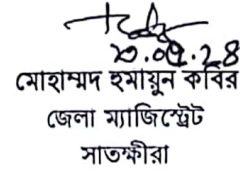 মোহাম্মদ হুমায়ুন কবির
জেলা ম্যাজিস্ট্রেট
সাতক্ষীরা